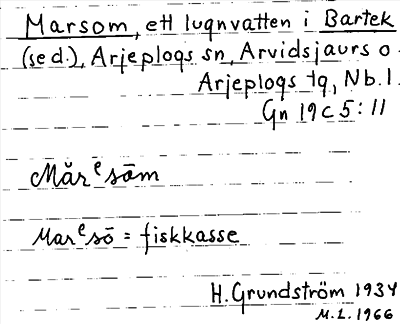 Marsom, ett lugnvatten i Bartek
(se d.), Arjeplogs sn, Arvidsjaurs o
Arjeplogs tg, Nb.l.
Gn 19C5:11
Măr^e sām
Mar^e sō = fiskkasse
H. Grundström 1934
M.L. 1966